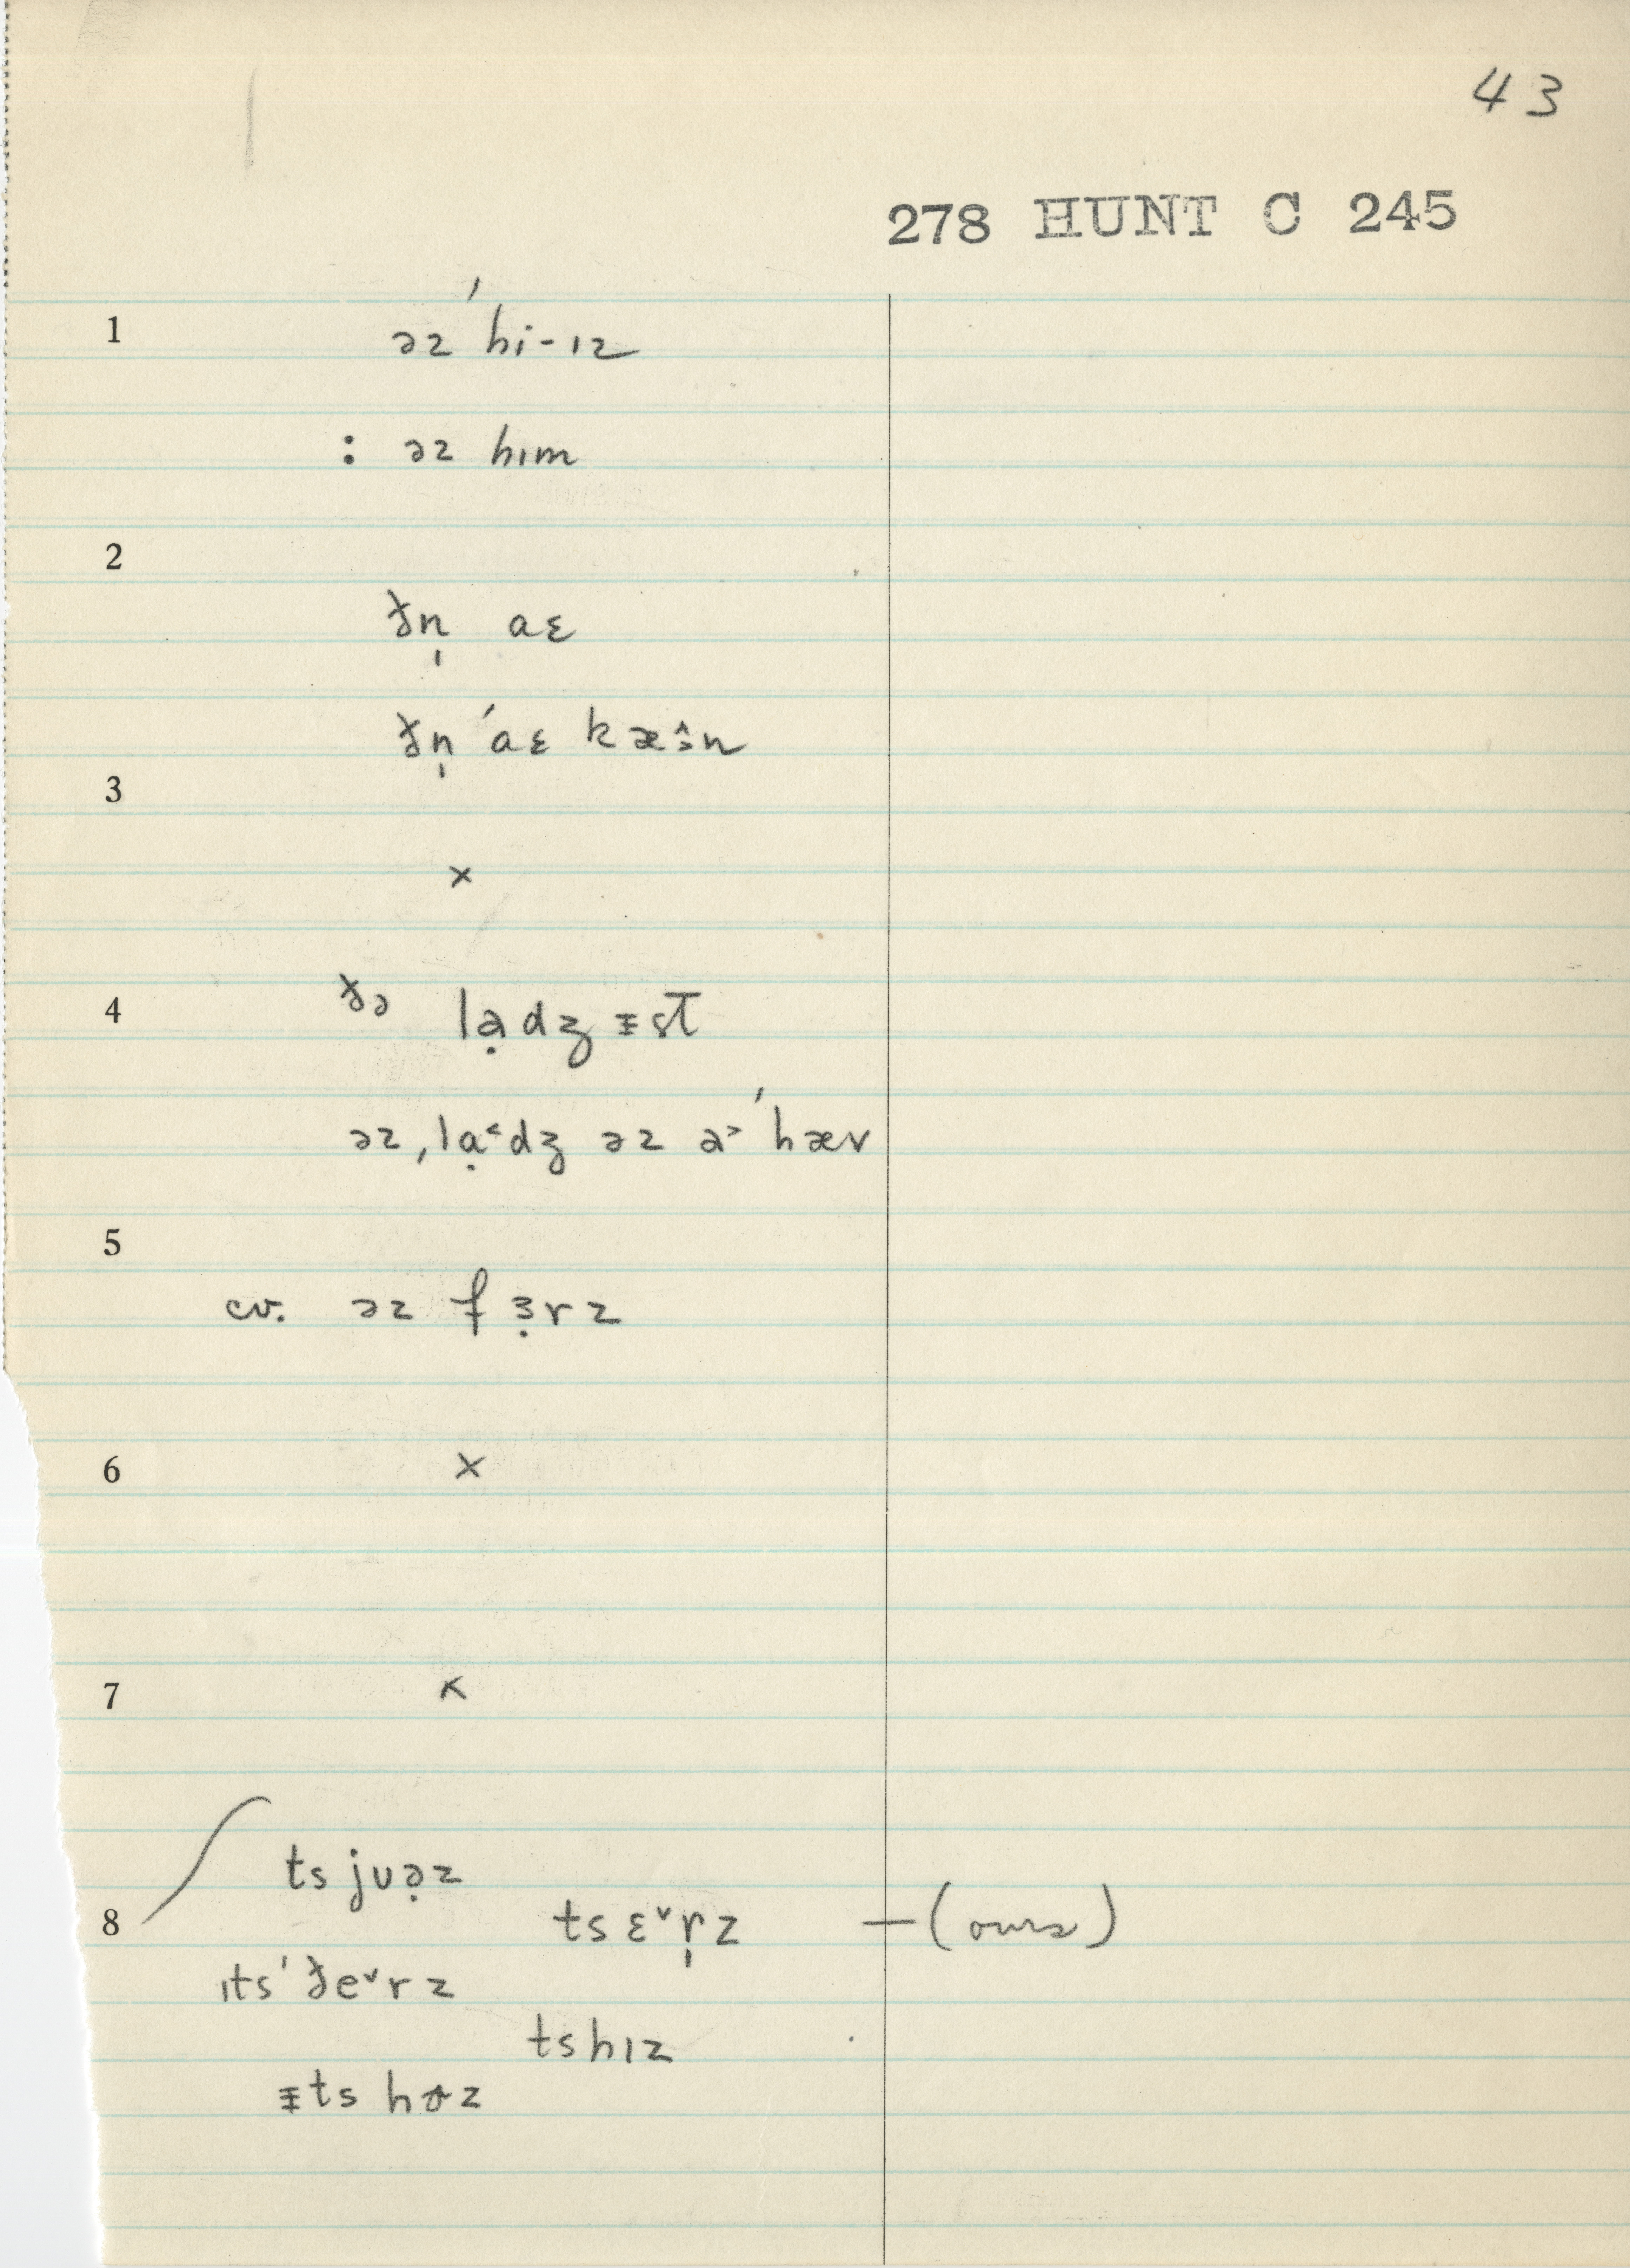 43
278 HUNT C 245
1 əz ˈhi-ɪz
: əz hɪm
2
ðn̩ aɛ
ðn̩ ˈaɛ kæɜ̂n
3
×
4 ðə lạdʒᵻst
əz ˌlạ˂dʒ əz ə˃ ˈhæv
5
cv. əz fɜ̣rz
6 ×
7 ×
ts jʊə̣z
8 ts ɛ˅r̩z —(ours)
ɪts ˈðe˅rz
tshɪz
ᵻts hɚz